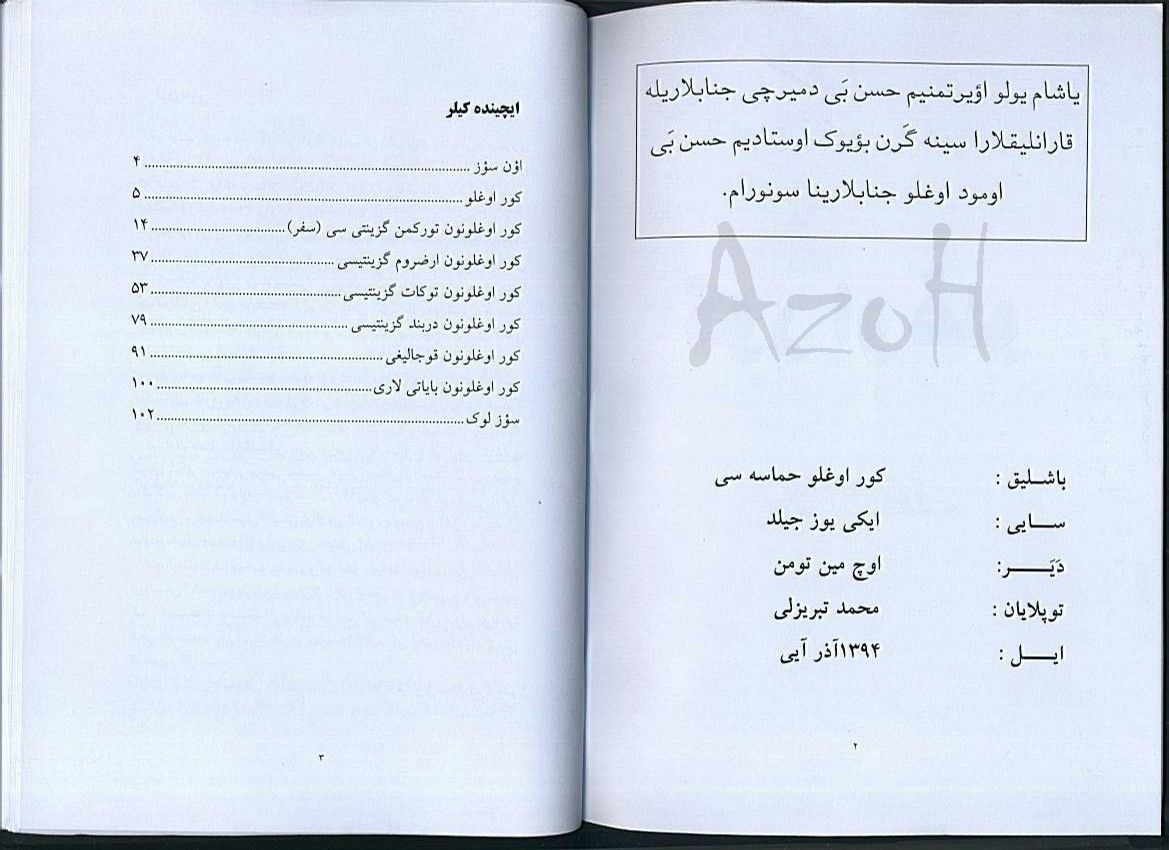 یاشام یولو اؤیرتمنیم حسن بَی دمیرچی جنابلاریله
قارانلیقلارا سینه گَرن بؤیوک اوستادیم حسن بَی
اومود اوغلو جنابلارینا سونورام.
AzoH
باشلیق : کور اوغلو حماسه سی
سایی : ایکی یوز جیلد
دَیَر: اوچ مین تومن
توپلایان : محمد تبریزلی
ایل : ۱۳۹۴آذر آیی
۲
ایچینده کیلر
اؤن سؤز ........ ۴
کور اوغلو ........ ۵
کور اوغلونون تورکمن گزینتی سی (سفر) ........ ۱۴
کور اوغلونون ارضروم گزینتیسی ........ ۳۷
کور اوغلونون توکات گزینتیسی ........ ۵۳
کور اوغلونون دربند گزینتیسی ........ ۷۹
کور اوغلونون قوجالیغی ........ ۹۱
کور اوغلونون بایاتی لاری ........ ۱۰۰
سؤز لوک ........ ۱۰۲
۳